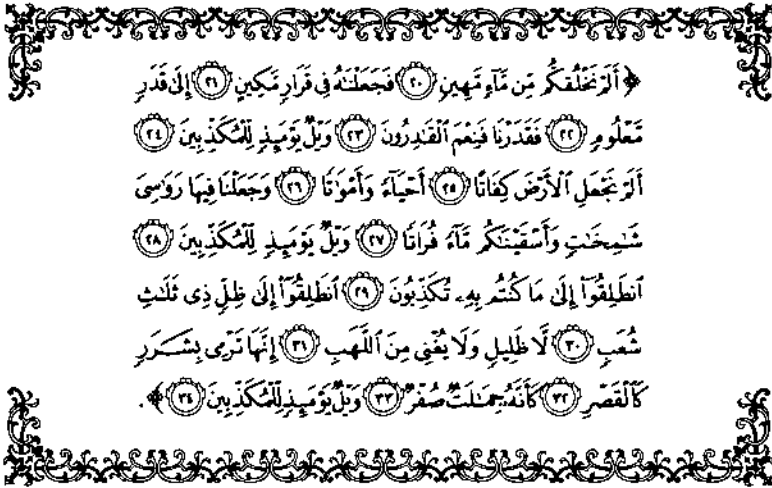 ﴿ أَلَمْ نَخْلُقكُّم مِّن مَّآءٍ مَّهِينٍ ﴿٢٠﴾ فَجَعَلْنَٰهُ فِى قَرَارٍ مَّكِينٍ ﴿٢١﴾ إِلَىٰ قَدَرٍ
مَّعْلُومٍ ﴿٢٢﴾ فَقَدَرْنَا فَنِعْمَ ٱلْقَٰدِرُونَ ﴿٢٣﴾ وَيْلٌ يَوْمَئِذٍ لِّلْمُكَذِّبِينَ ﴿٢٤﴾
أَلَمْ نَجْعَلِ ٱلْأَرْضَ كِفَاتًا ﴿٢٥﴾ أَحْيَآءً وَأَمْوَٰتًا ﴿٢٦﴾ وَجَعَلْنَا فِيهَا رَوَٰسِىَ
شَٰمِخَٰتٍ وَأَسْقَيْنَٰكُم مَّآءً فُرَاتًا ﴿٢٧﴾ وَيْلٌ يَوْمَئِذٍ لِّلْمُكَذِّبِينَ ﴿٢٨﴾
ٱنطَلِقُوٓا۟ إِلَىٰ مَا كُنتُم بِهِۦ تُكَذِّبُونَ ﴿٢٩﴾ ٱنطَلِقُوٓا۟ إِلَىٰ ظِلٍّ ذِى ثَلَٰثِ
شُعَبٍ ﴿٣٠﴾ لَّا ظَلِيلٍ وَلَا يُغْنِى مِنَ ٱللَّهَبِ ﴿٣١﴾ إِنَّهَا تَرْمِى بِشَرَرٍ
كَٱلْقَصْرِ ﴿٣٢﴾ كَأَنَّهُۥ جِمَٰلَتٌ صُفْرٌ ﴿٣٣﴾ وَيْلٌ يَوْمَئِذٍ لِّلْمُكَذِّبِينَ ﴿٣٤﴾ ﴾ .